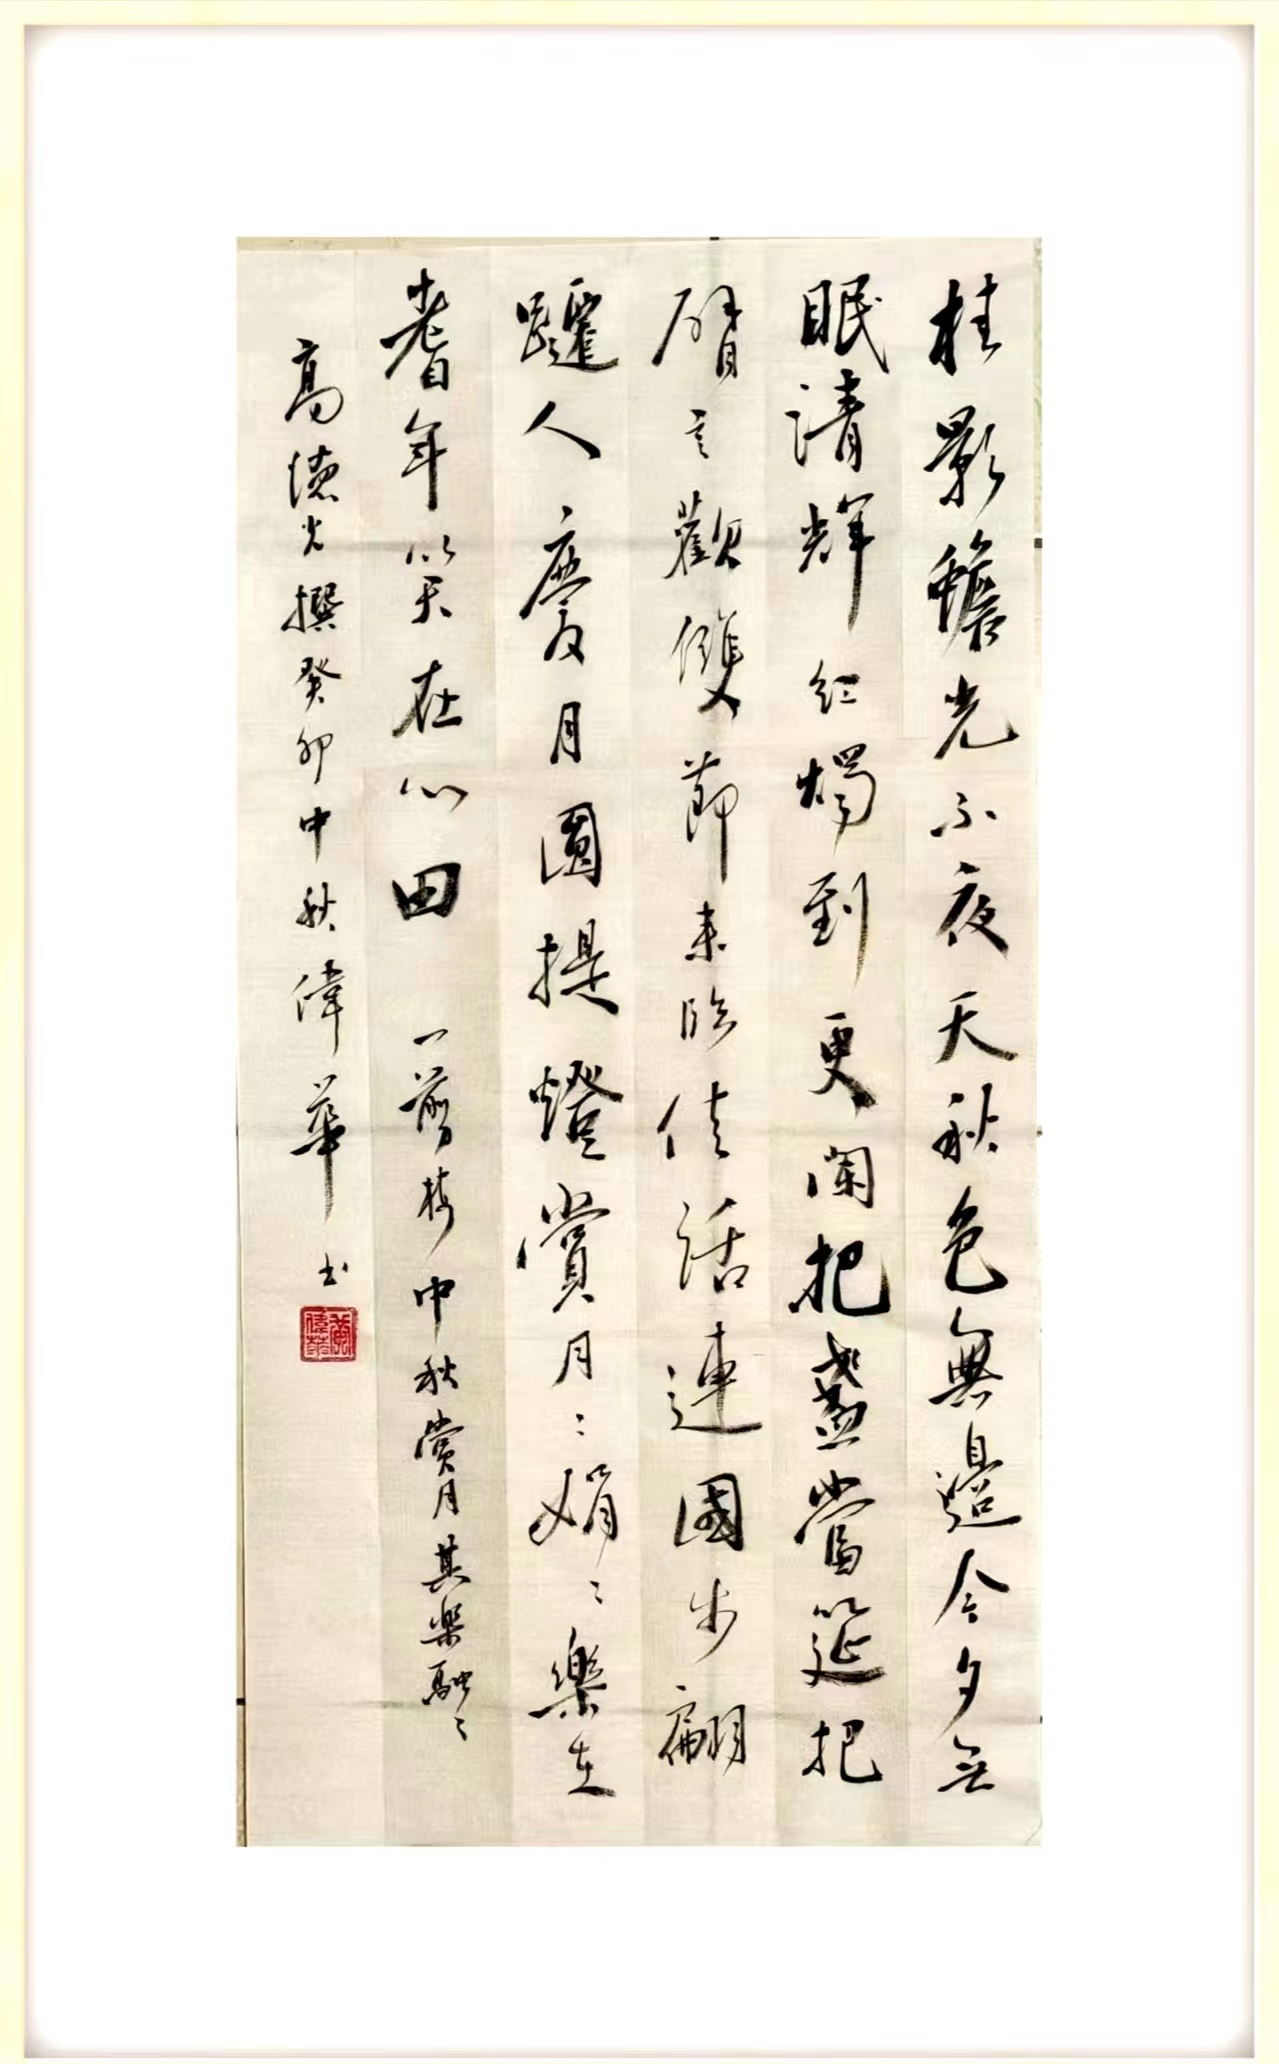 桂影蟾光不夜天秋色無邊今夕无
眠清輝紅燭到更闌把盞當筵把
臂言歡雙節來臨佳話連國步翩
躚人慶月圓提燈賞月〻娟〻樂在
耆年笑在心田 一剪梅 中秋賞月其樂融〻
高德光撰癸卯中秋偉華书